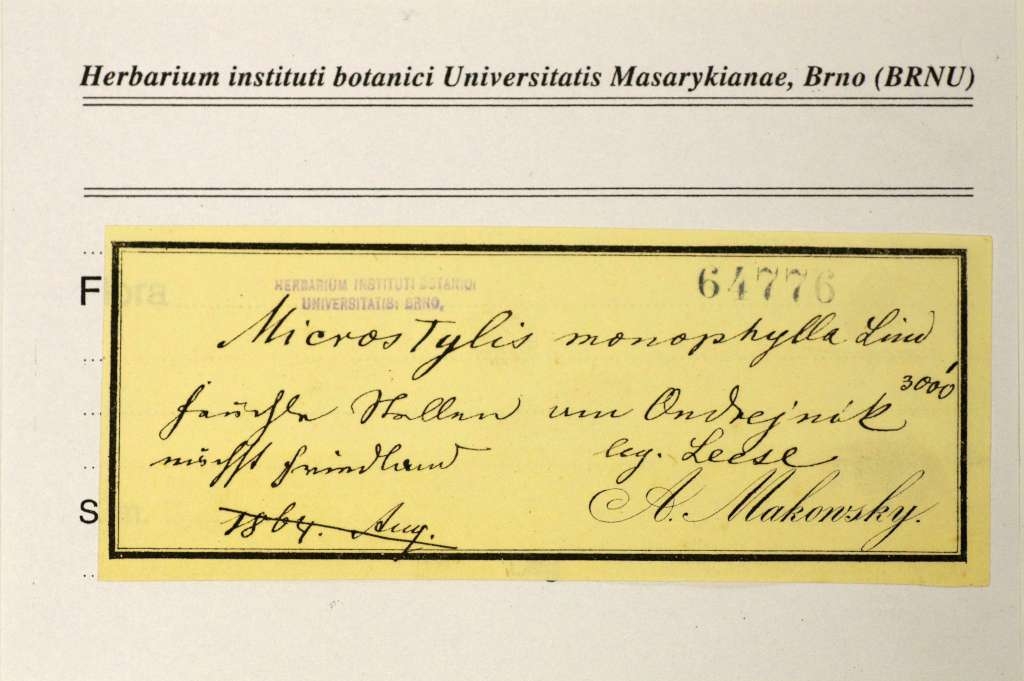 Herbarium instituti botanici Universitatis Masarykianae, Brno (BRNU)
F
HERBARIUM INSTITUTI BOTANICI
UNIVERSITATIS: BRNO,
64776
Microstylis monophylla Lind
feuchte Stellen am Ondrejnik 3000'
nächst Friedland leg. Leese
S
1864. Aug. A. Makowsky.